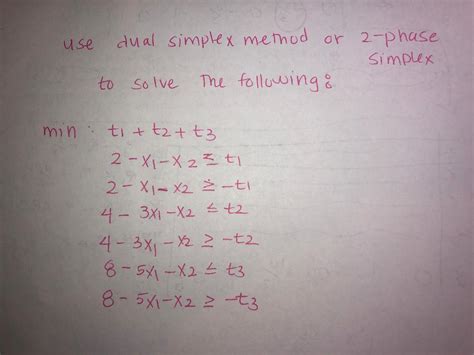 use dual simplex method or 2-phase
simplex
to solve the following:
min : t1 + t2 + t3
2 - x1 - x2 ≤ t1
2 - x1 - x2 ≥ -t1
4 - 3x1 - x2 ≤ t2
4 - 3x1 - x2 ≥ -t2
8 - 5x1 - x2 ≤ t3
8 - 5x1 - x2 ≥ -t3